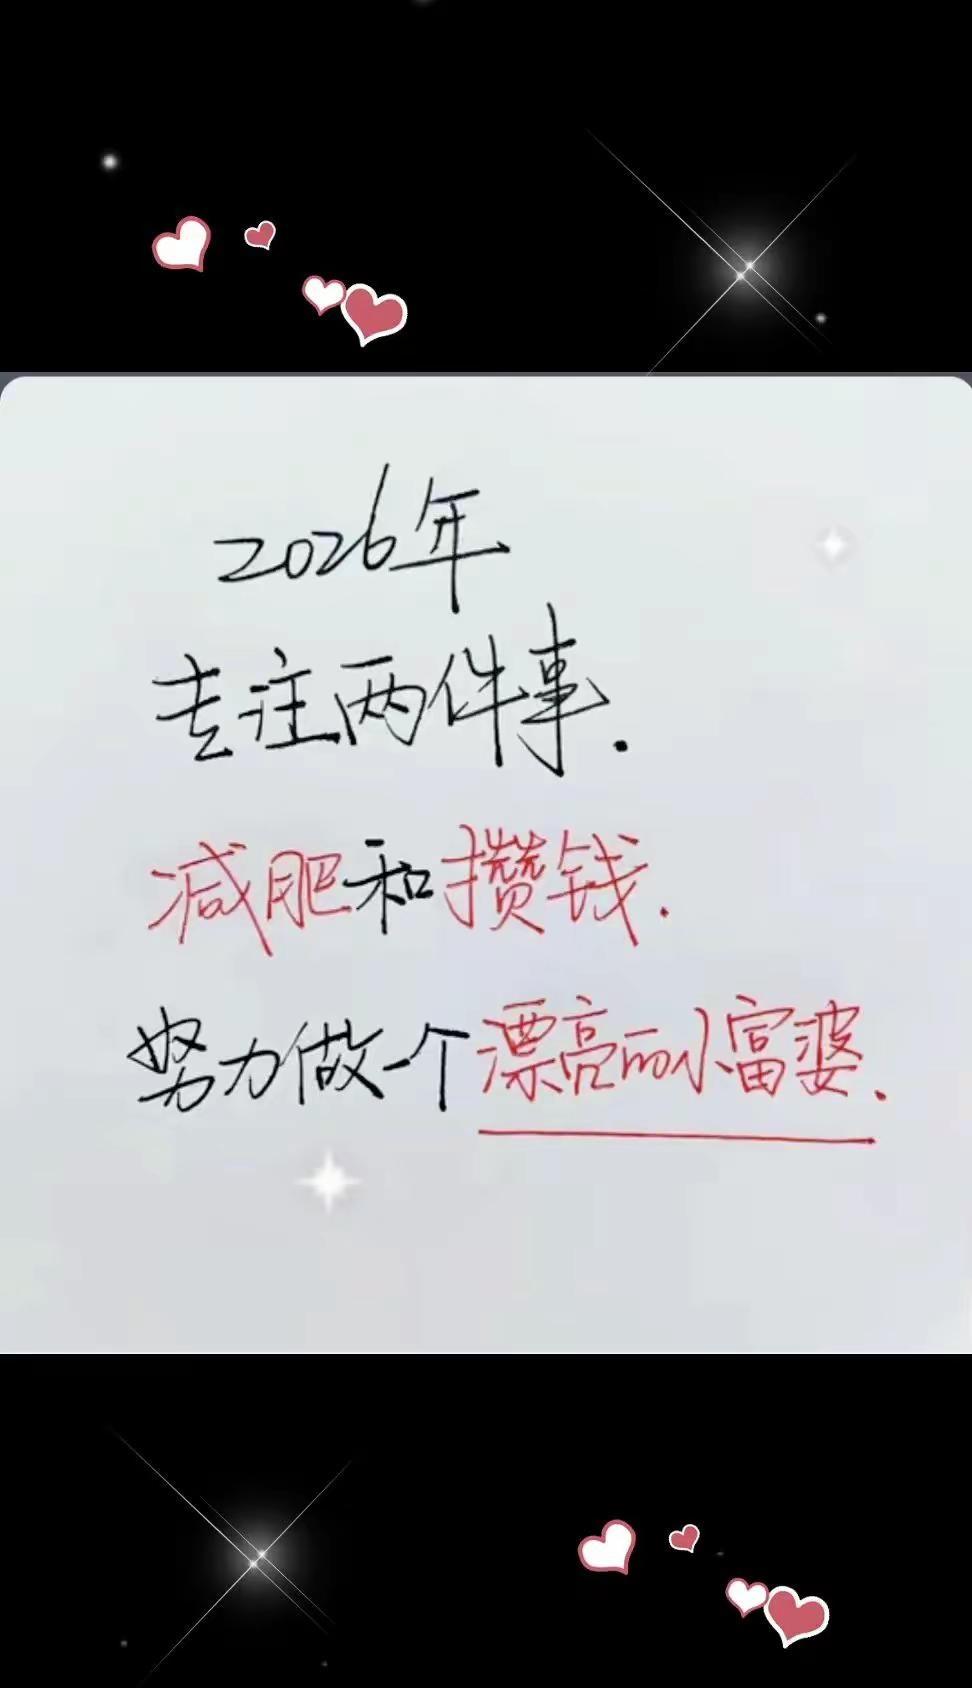 2026年
专注两件事.
减肥和攒钱.
努力做一个漂亮的小富婆.